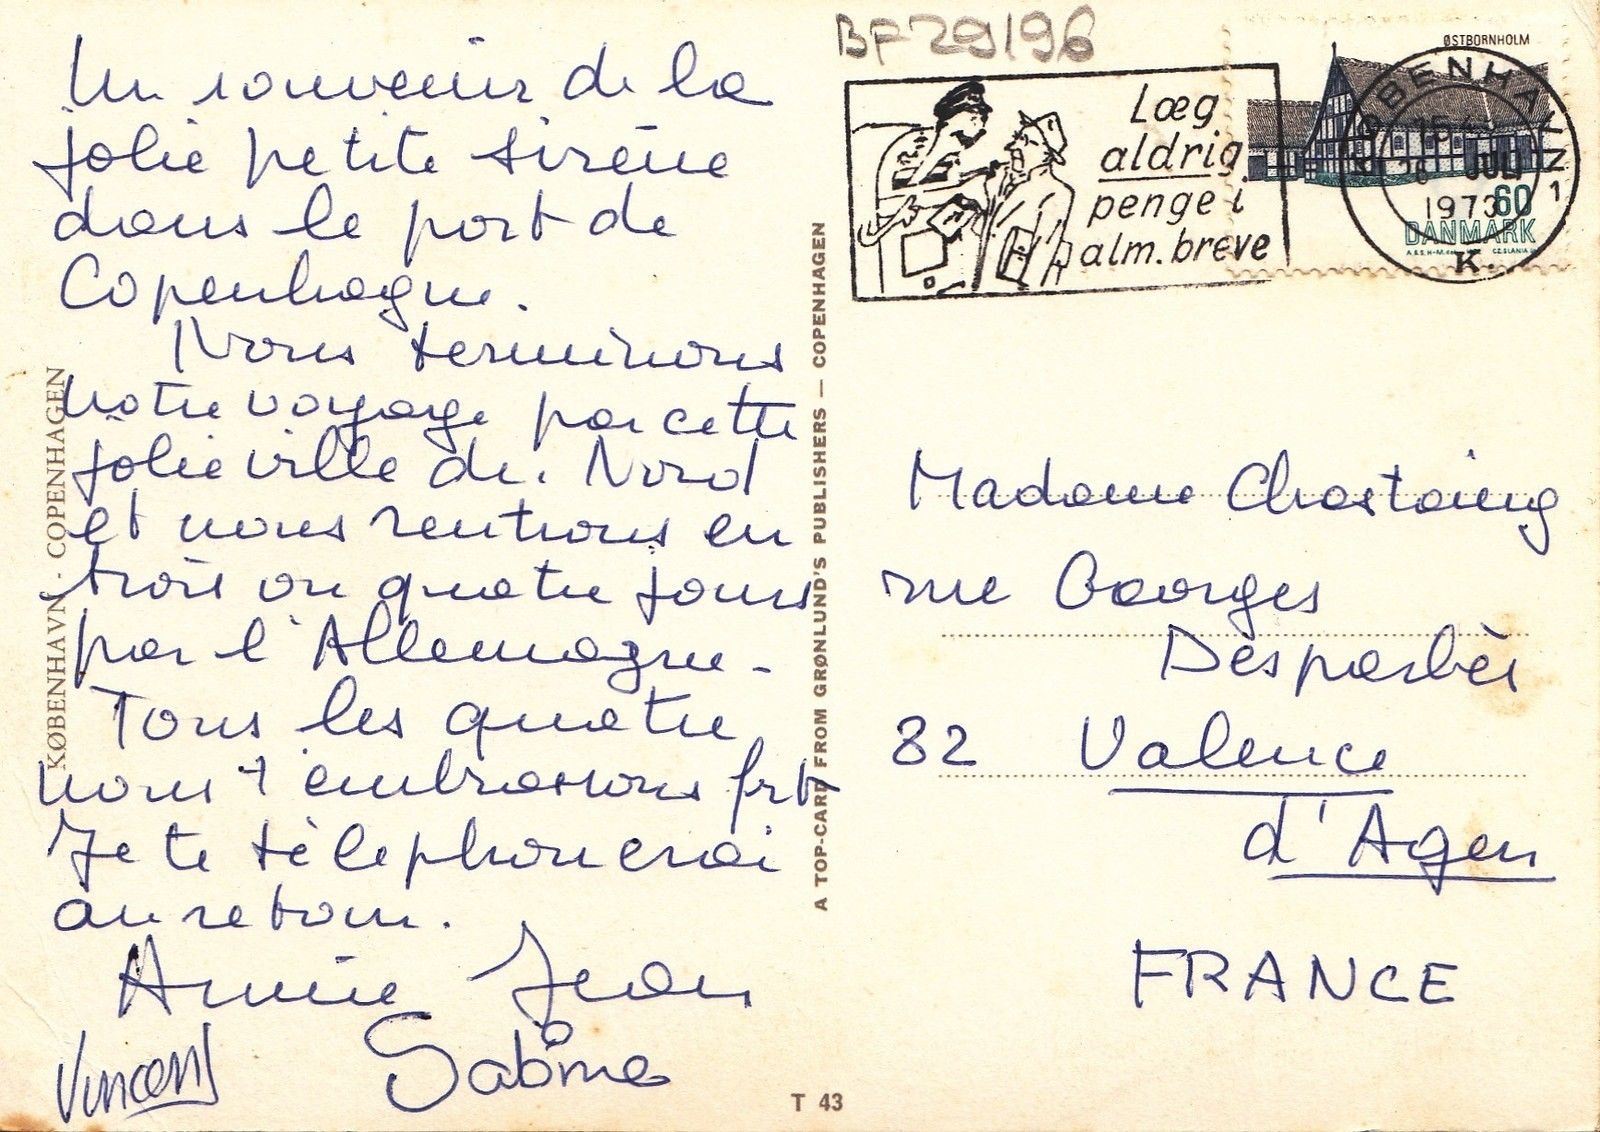 Un souvenir de la
jolie petite sirène
dans le port de
Copenhague.
Nous terminons
notre voyage par cette
jolie ville du Nord
et nous rentrons en
trois ou quatre jours
par l'Allemagne.
Tous les quatre
nous t'embrassons frt
Je te téléphonerai
au retour.
Annie Jean
Vincent Sabine
KØBENHAVN - COPENHAGEN
A TOP-CARD FROM GRØNLUND'S PUBLISHERS — COPENHAGEN
T 43
BF 29196
Læg
aldrig
penge i
alm. breve
ØSTBORNHOLM
KØBENHAVN
JULI
1973
K.
1
60
DANMARK
CZ.SLANIA
Madame Chastaing
rue Georges
Desparbès
82 Valence
d'Agen
FRANCE